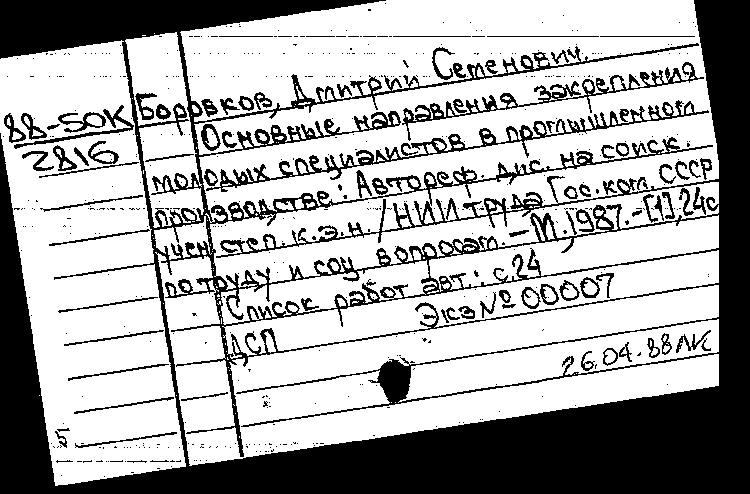 88-50К
2816
Боровков, Дмитрий Семенович.
Основные направления закрепления
молодых специалистов в промышленном
производстве: Автореф. дис. на соиск.
учен. степ. к.э.н. /НИИ труда Гос. ком. СССР
по труду и соц. вопросам. – М., 1987. – [1], 24с
Список работ авт.: с. 24
ДСП Экз № 00007
26.04.88
5